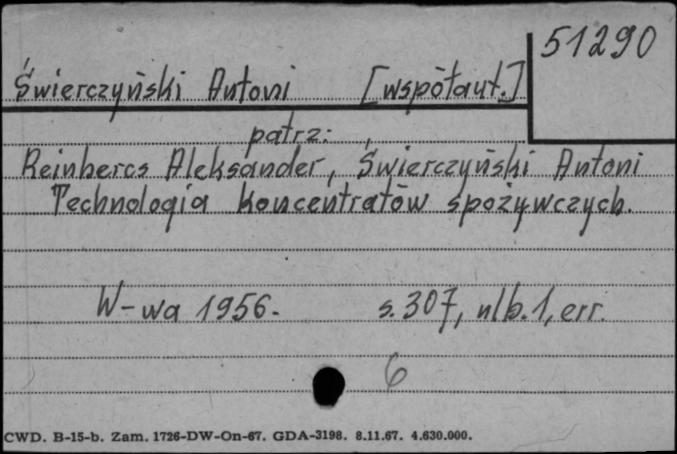 51290
Świerczyński Antoni [współaut.]
patrz:
Reinbercs Aleksander, Świerczyński Antoni
Technologia koncentratów spożywczych.
W-wa 1956. s. 307, nlb. 1, err.
6
CWD. B-15-b. Zam. 1726-DW-On-67. GDA-3198. 8.11.67. 4.630.000.